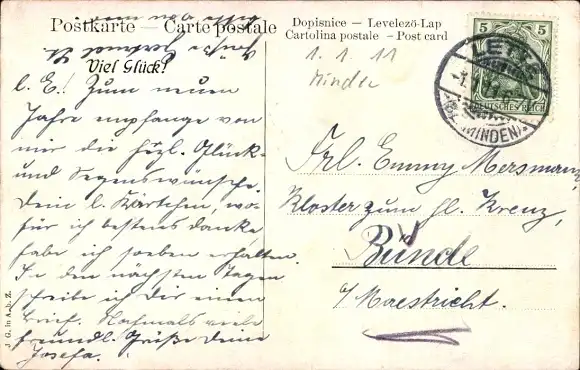 Postkarte — Carte postale
Dopisnice — Levelező-Lap
Cartolina postale — Post card
Viel Glück!
1. 1. 11
Minden
5 5
DEUTSCHES REICH
(KR. MINDEN)
l. E.! Zum neuen
Jahre empfange von
mir die hzl. Glück-
und Segenswünsche.
Dein l. Kärtchen, wo-
für ich bestens danke
habe ich soeben erhalten.
In den nächsten Tagen
schreibe ich Dir einen
Brief. Nochmals viele
freundl. Grüße Deine
Josefa.
Frl. Emmy Mersmann,
Kloster zum hl. Kreuz,
Bünde
b/ Maestricht.
J. G. in A. b. Z.